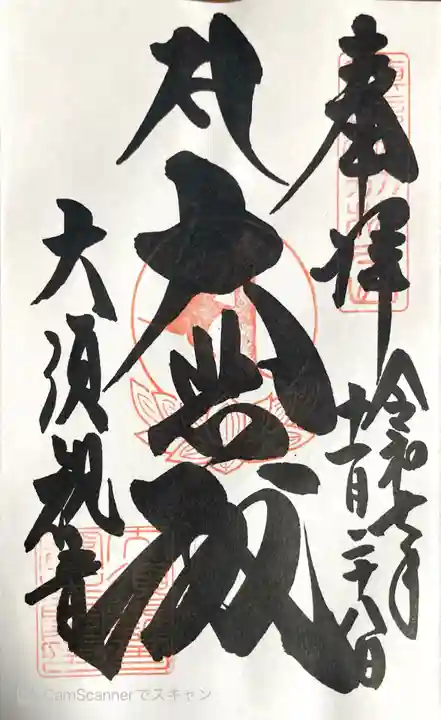 奉拝
令和七年
十一月二十八日
大悲殿
大須観音
CamScannerでスキャン